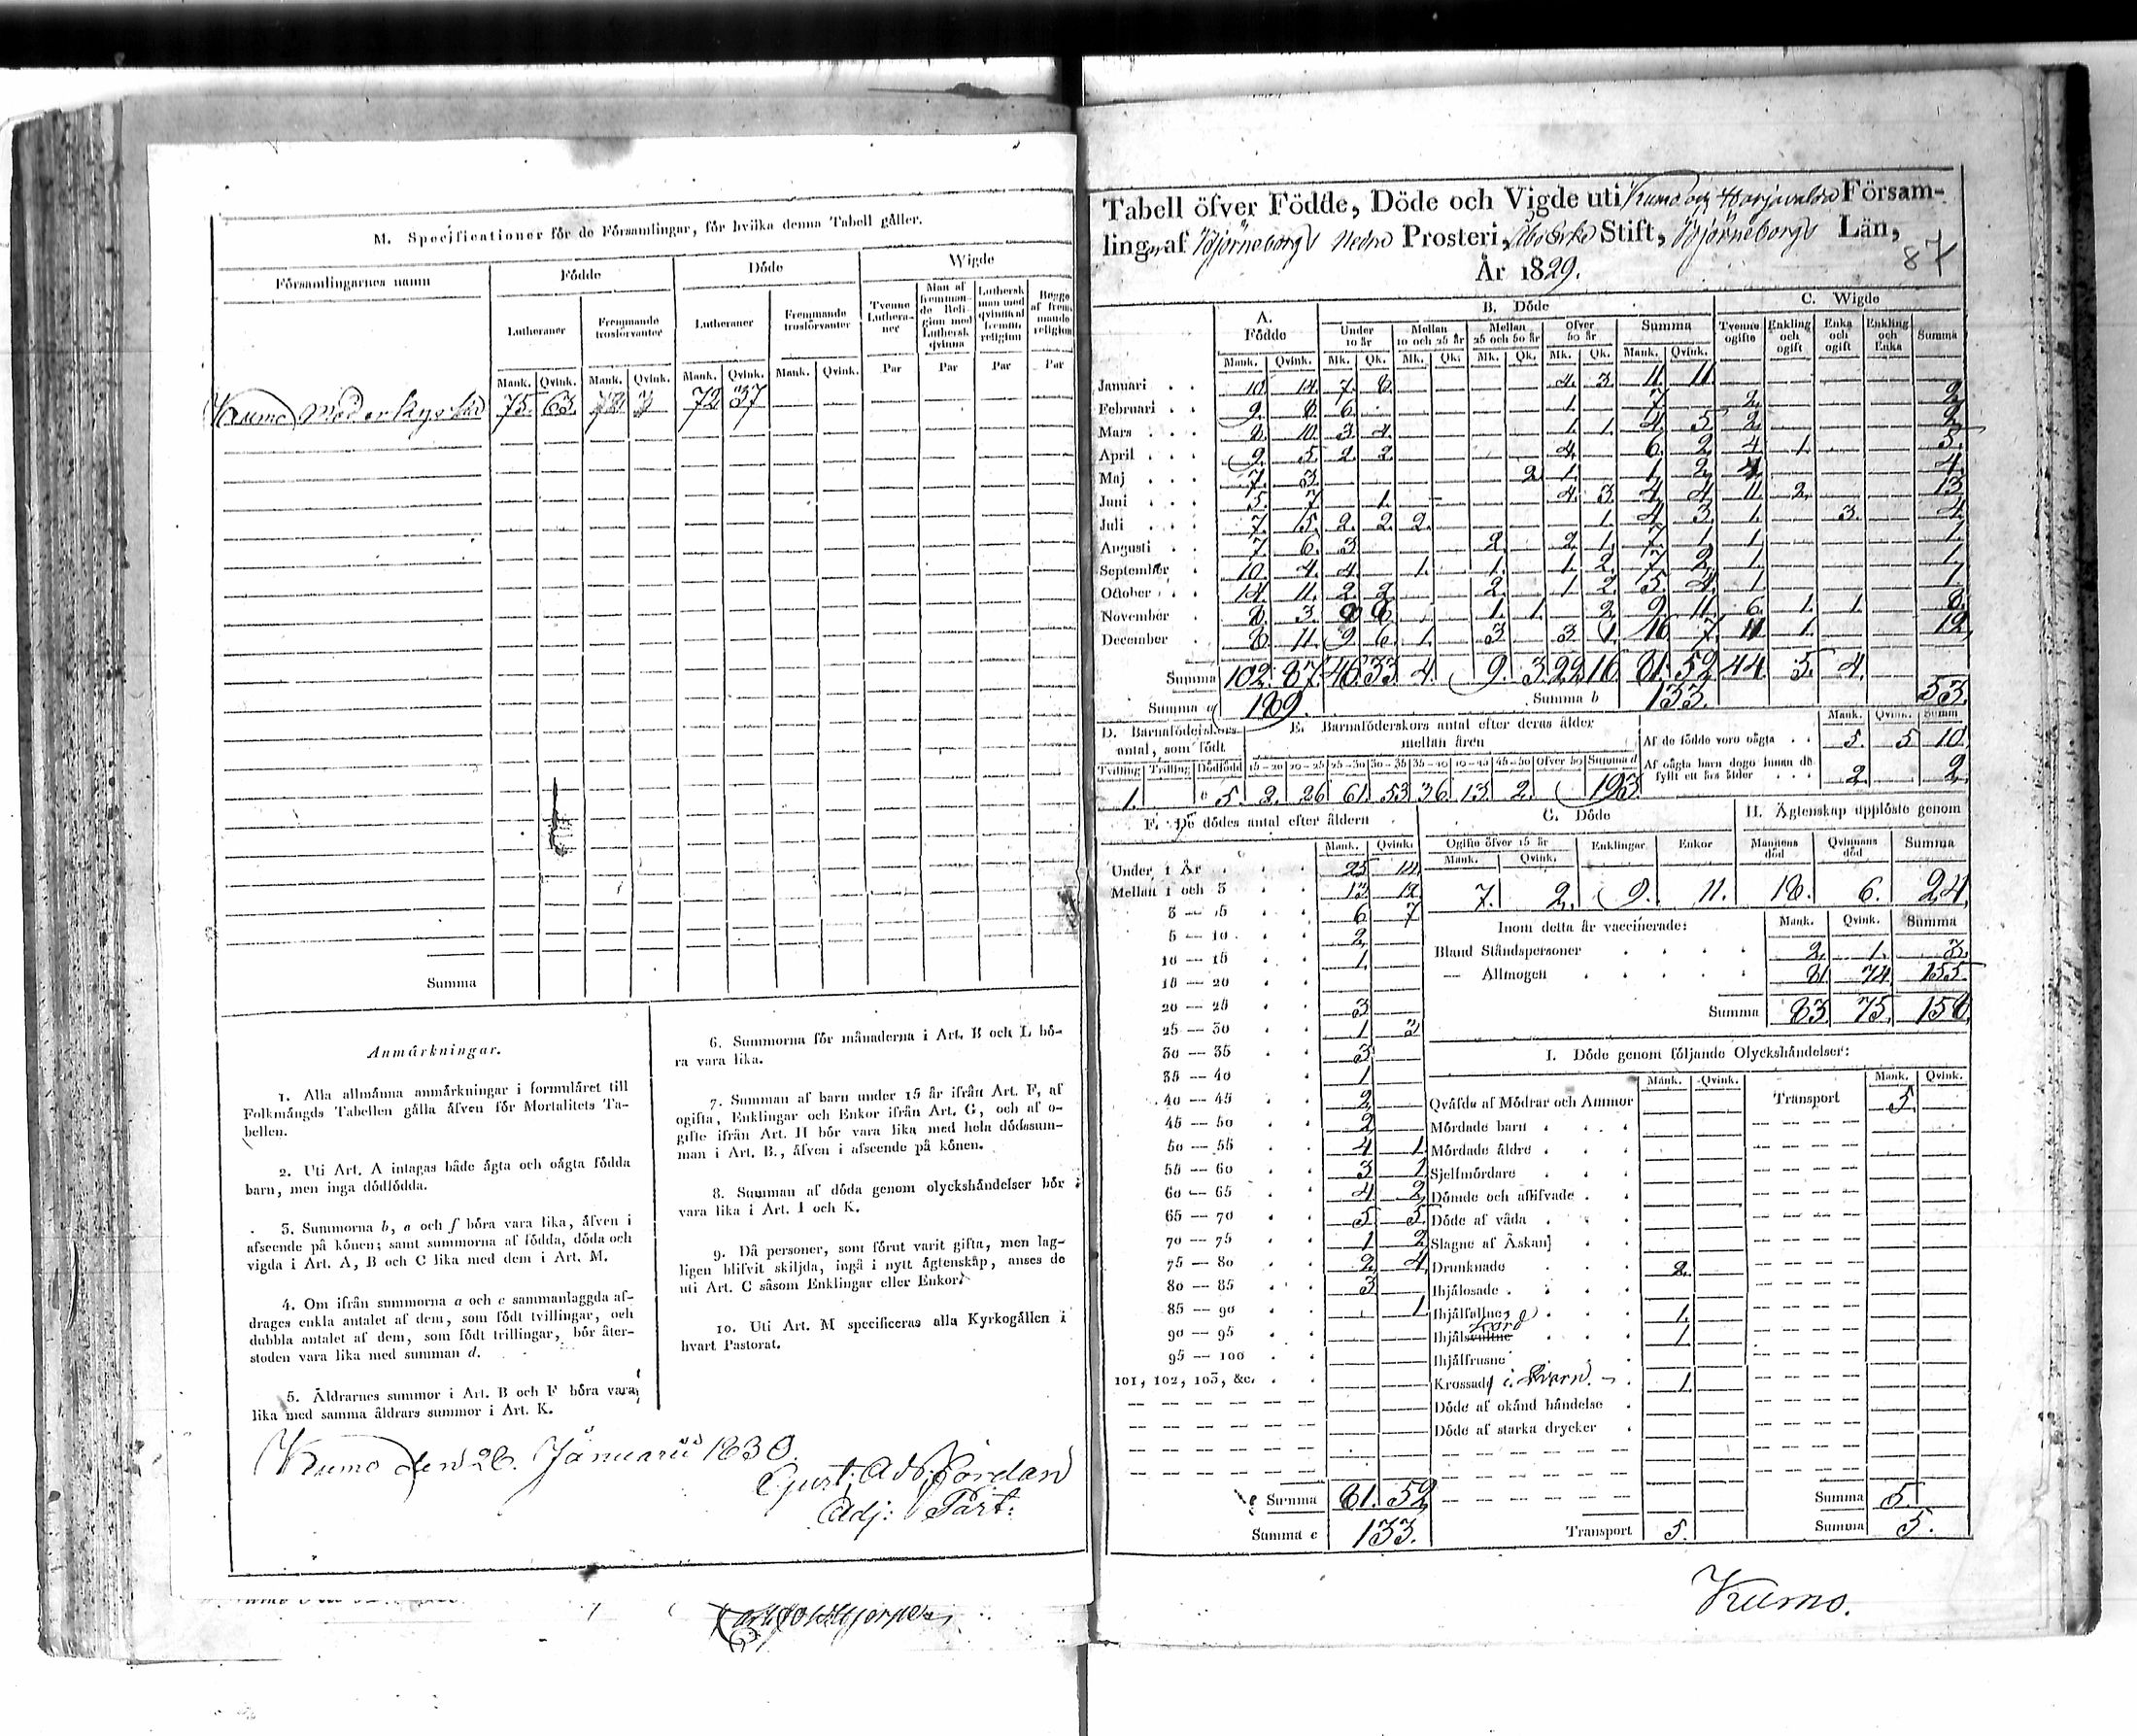 M. Specificationer för de Församlingar, för hvilka denna Tabell gäller.
Församlingarnes namn Födde Döde Wigde
Lutheraner Fremmande trosförvanter Lutheraner Fremmande trosförvanter Tvenne Lutheraner Man af fremmande Religion med Luthersk qvinna Luthersk man med qvinna af fremm. religion Begge af fremmande religion
Mank. Qvink. Mank. Qvink. Mank. Qvink. Mank. Qvink. Par Par Par Par
Kumo Moderkyrka 75. 63. 72 37
Summa
Anmärkningar.
1. Alla allmänna anmärkningar i formuläret till
Folkmängds Tabellen gälla äfven för Mortalitets Ta-
bellen.
2. Uti Art. A intagas både ägta och oägta födda
barn, men inga dödfödda.
3. Summorna b, e och f böra vara lika, äfven i
afseende på könen; samt summorna af födda, döda och
vigda i Art. A, B och C lika med dem i Art. M.
4. Om ifrån summorna a och c sammanlaggda af-
drages enkla antalet af dem, som födt tvillingar, och
dubbla antalet af dem, som födt trillingar, bör åter-
stoden vara lika med summan d.
5. Åldrarnes summor i Art. B och F böra vara
lika med samma åldrars summor i Art. K.
6. Summorna för månaderna i Art. B och L bö-
ra vara lika.
7. Summan af barn under 15 år ifrån Art. F, af
ogifta, Enklingar och Enkor ifrån Art. G, och af
gifte ifrån Art. H bör vara lika med hela dödssum-
man i Art. B., äfven i afseende på könen.
8. Summan af döda genom olyckshändelser bör
vara lika i Art. I och K.
9. Då personer, som förut varit gifta, men lag-
ligen blifvit skiljda, ingå i nytt ägtenskap, anses de
uti Art. C såsom Enklingar eller Enkor.
10. Uti Art. M specificeras alla Kyrkogällen i
hvart Pastorat.
Kumo den 26. Januarii 1830.
Gust. Ad. Jordan
Adj: Past:
Tabell öfver Födde, Döde och Vigde uti Kumo och Harjavalda Försam-
lingar af Björneborgs Nedre Prosteri, Åbo Erke Stift, Björneborgs Län,
År 1829.
87
A. Födde B. Döde C. Wigde
Under 10 år Mellan 10 och 25 år Mellan 25 och 50 år Öfver 50 år Summa Tvenne ogifte Enkling och ogift Enka och ogift Enkling och Enka Summa
Mank. Qvink. Mk. Qk. Mk. Qk. Mk. Qk. Mk. Qk. Mank. Qvink.
Januari 10. 14. 7. 8. 4. 3. 11. 11
Februari 9. 8. 6. 1. 7 2. 2
Mars 8. 10. 3. 4. 1. 1. 4. 5. 2. 2
April 9. 5. 2. 2. 4. 6. 2. 4. 1. 5.
Maj 7. 3. 2. 1. 1. 2. 4. 4.
Juni 5. 7. 1. 4. 3. 4. 4. 11. 2. 13
Juli 7. 5. 2. 2 2. 1. 4. 3. 1. 3. 4
Augusti 7. 6. 3. 2. 2. 1. 7. 1. 1. 1.
September 10. 4. 4. 1. 1. 1. 2. 7. 2. 1. 1.
October 14. 11. 2. 2. 2. 1. 2. 5. 4. 1. 1.
November 8. 3. 8 8. 1. 1. 2. 9. 11. 6. 1. 1. 8.
December 8. 11. 9. 6. 1. 3. 3. 1. 16. 7. 11. 1. 12
Summa 102. 87. 46. 33. 4. 9. 3. 22. 16. 81. 52. 44. 5. 4.
Summa a 189. Summa b 133. 53.
D. Barnaföderskors antal, som födt
E. Barnaföderskors antal efter deras ålder mellan åren
Mank. Qvink. Summa
Af de födde voro oägta 5. 5 10.
Af oägta barn dogo innan de fyllt ett års ålder 2. 2.
Tvilling Trilling Dödfödd 15–20 20–25 25–30 30–35 35–40 40–45 45–50 öfver 50 Summa d
1. c 5. 2. 26. 61. 53 36. 13. 2. 193
F. De dödes antal efter åldern
Mank. Qvink.
Under 1 År 25 14.
Mellan 1 och 3 13. 12
3 — 5 6 7
5 — 10 2.
10 — 15 1.
15 — 20
20 — 25 3
25 — 30 1 3
30 — 35 3
35 — 40 1
40 — 45 2
45 — 50 2
50 — 55 4 1.
55 — 60 3 1
60 — 65 4 2
65 — 70 5 5.
70 — 75 1 2
75 — 80 2 4
80 — 85 3
85 — 90 1
90 — 95
95 — 100
101, 102, 103, &c.
Summa 81. 52
Summa e 133.
G. Döde H. Ägtenskap upplöste genom
Ogifte öfver 15 år Enklingar Enkor Mannens död Qvinnans död Summa
Mank. Qvink.
7. 2. 9. 11. 18. 6. 24
Inom detta år vaccinerade: Mank. Qvink. Summa
Bland Ståndspersoner 2. 1. 3.
— Allmogen 81. 74. 155
Summa 83. 75. 158.
I. Döde genom följande Olyckshändelser:
Mank. Qvink. Mank. Qvink.
Qväfde af Mödrar och Ammor Transport 5.
Mördade barn
Mördade äldre
Sjelfmördare
Dömde och aflifvade
Döde af våda
Slagne af Åskan
Drunknade 2.
Ihjälosade
Ihjälfallne 1.
Ihjälsvultne 1
Ihjälfrusne
Krossade i Qvarn. 1.
Döde af okänd händelse
Döde af starka drycker
Summa 5.
Transport 5. Summa 5.
Kumo.